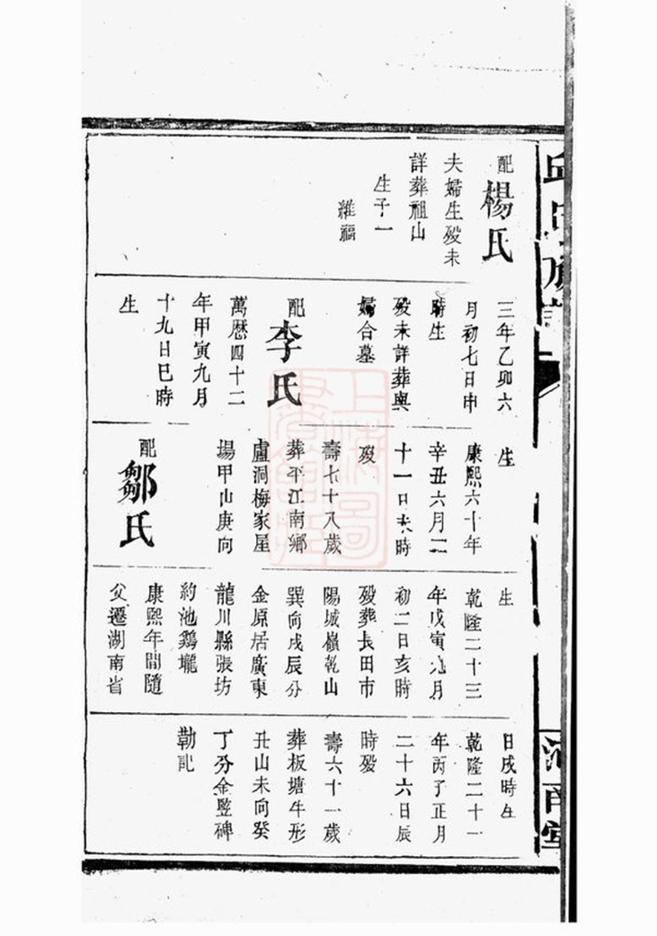 配楊氏
夫婦生歿未
詳葬祖山
生子一
維福
三年乙卯六
月初七日申
時生
歿未詳葬與
婦合墓
配李氏
萬曆四十二
年甲寅九月
十九日巳時
生
生
康熙六十年
辛丑六月二
十一日未時
歿
壽七十八歲
葬平江南鄉
盧洞梅家屋
場甲山庚向
配鄒氏
生
乾隆二十三
年戊寅九月
初二日亥時
歿葬長田市
陽城嶺乾山
巽向戌辰分
金原居廣東
龍川縣張坊
約池鷄壠
康熙年間隨
父遷湖南省
日戌時生
乾隆二十一
年丙子正月
二十六日辰
時歿
壽六十一歲
葬板塘牛形
丑山未向癸
丁分金竪碑
勒記